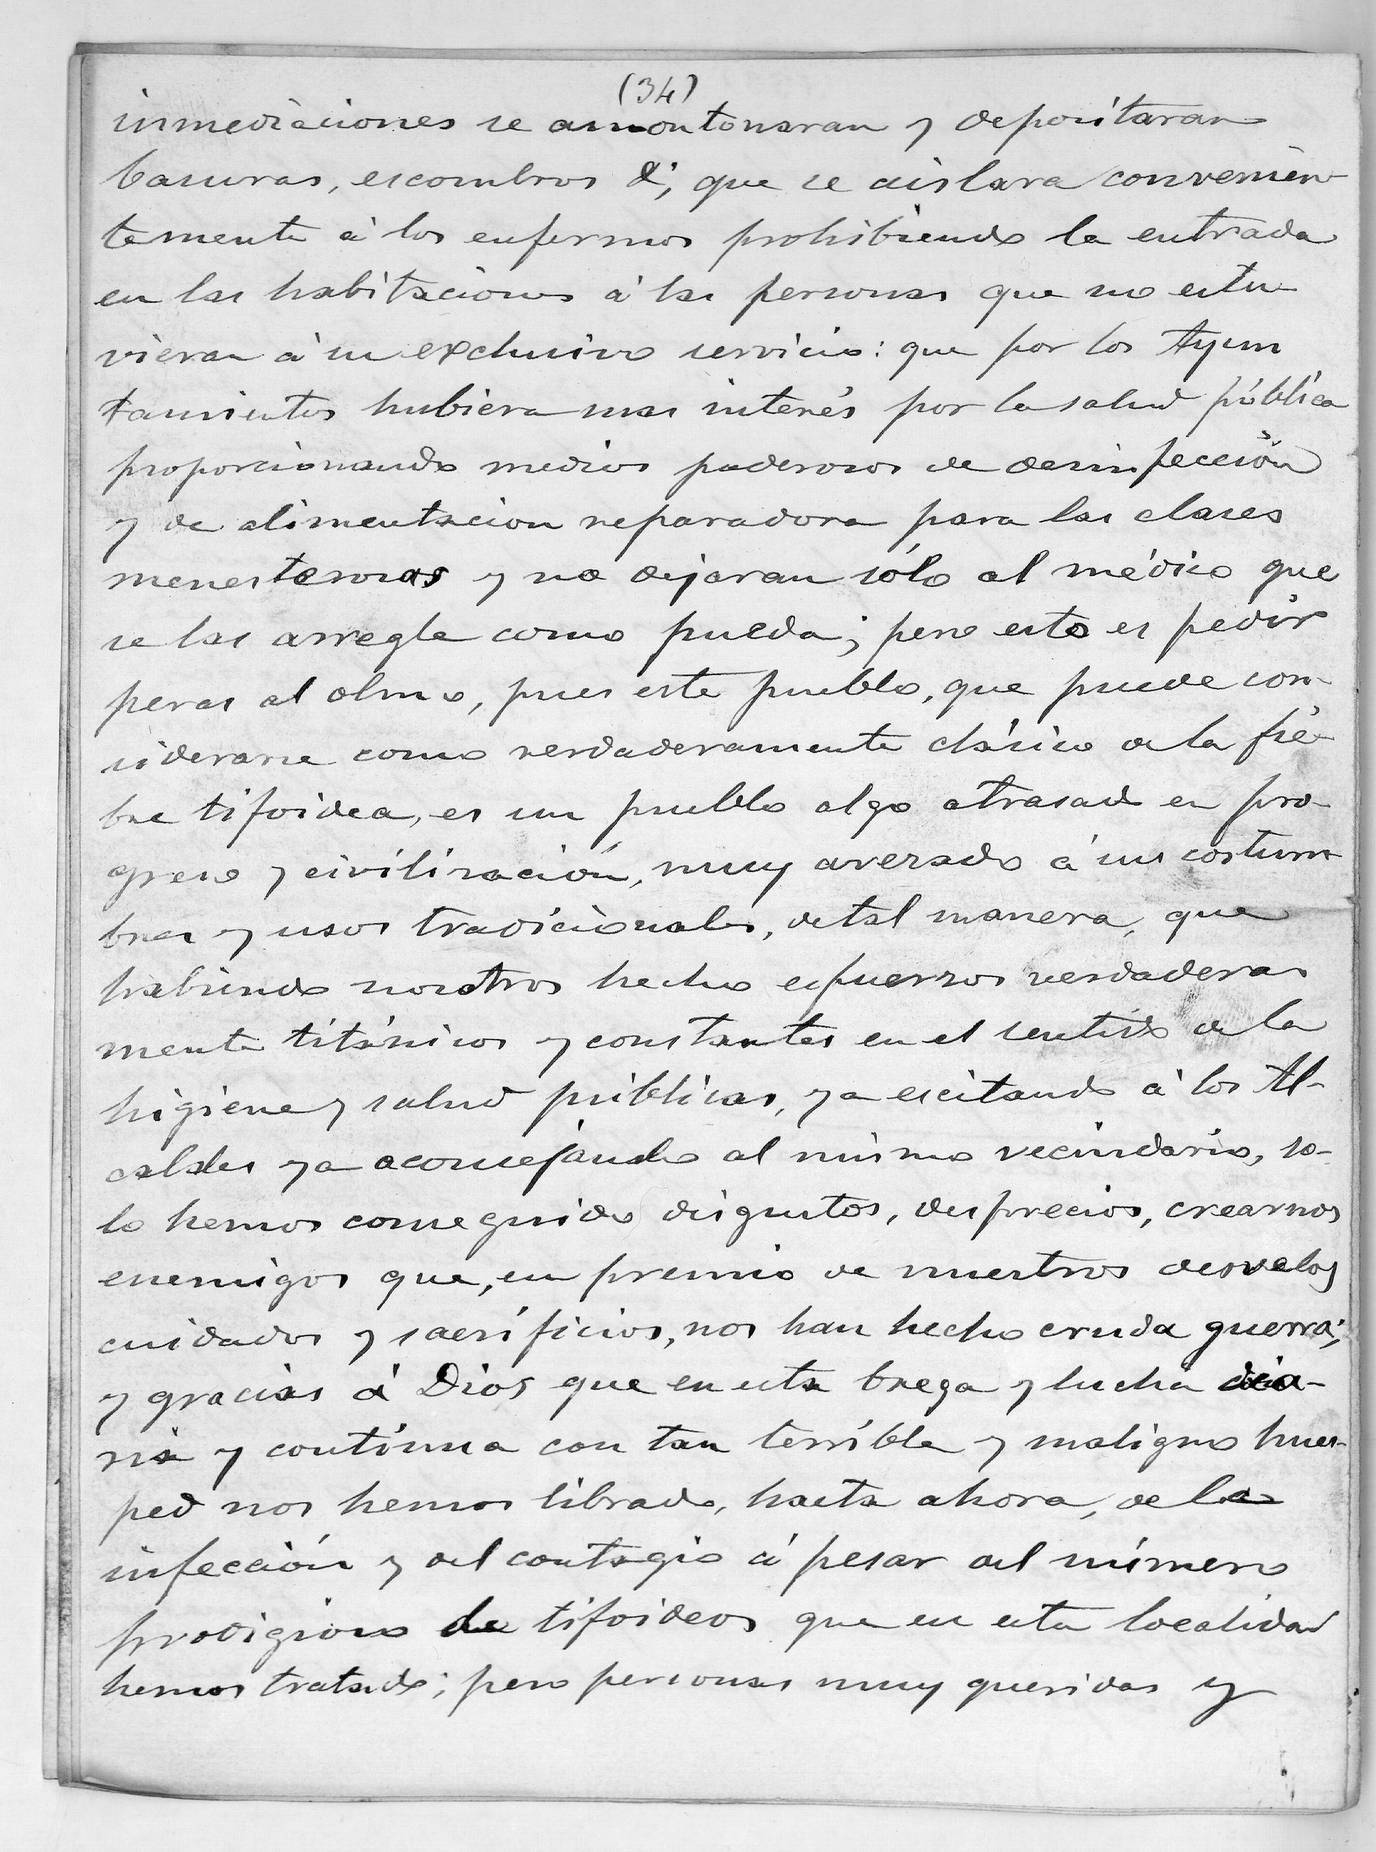 (34)
inmediaciones se amontonaran y depositaran
basuras, escombros &; que se aislara convenien-
temente á los enfermos prohibiendo la entrada
en las habitaciones á las personas que no estu-
vieran á su exclusivo servicio: que por los Ayun
tamientos hubiera mas interés por la salud pública
proporcionando medios poderosos de desinfección
y de alimentacion reparadora para las clases
menesterosas y no dejaran sólo al médico que
se las arregle como pueda; pero esto es pedir
peras al olmo, pues este pueblo, que puede con-
siderarse como verdaderamente clásico de la fie-
bre tifoidea, es un pueblo algo atrasado en pro-
greso y civilización, muy avezado á sus costum-
bres y usos tradicionales, de tal manera, que
habiendo nosotros hecho esfuerzos verdadera-
mente titánicos y constantes en el sentido de la
higiene y salud públicas, ya escitando á los Al-
caldes ya aconsejando al mismo vecindario, so-
lo hemos conseguido disgustos, desprecios, crearnos
enemigos que, en premio de nuestros desvelos
cuidados y sacrificios, nos han hecho cruda guerra;
y gracias á Dios que en esta brega y lucha dia-
ria y contínua con tan terrible y maligno hues-
ped nos hemos librado, hasta ahora, de la
infección y del contagio á pesar del número
prodigioso de tifoideos que en esta localidad
hemos tratado; pero personas muy queridas y